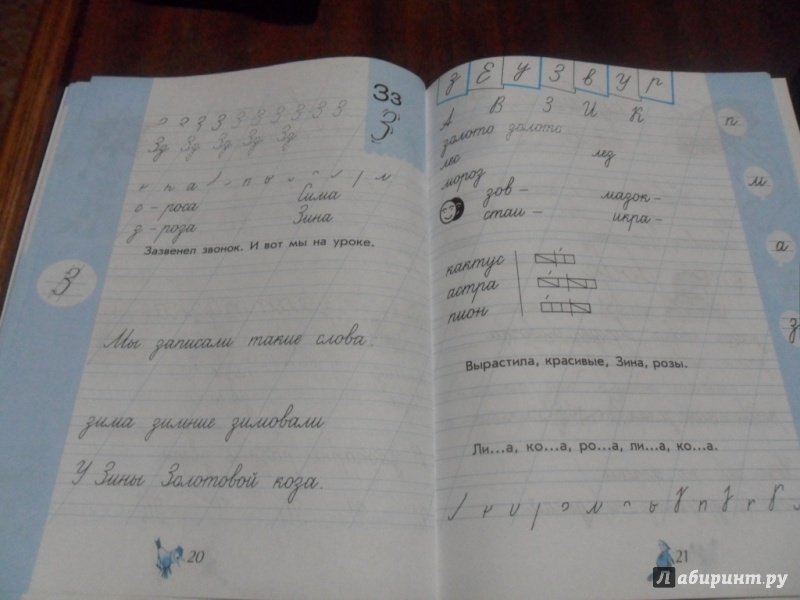 Зз
З
Зд Зд Зд Зд Зд
с - роса Сима
з - роза Зина
Зазвенел звонок. И вот мы на уроке.
З
Мы записали такие слова.
зима зимние зимовали
У Зины Золотовой коза.
20
з Е У З в У р
А В З И К
золото золото
лес лез
мороз
зов - мазок -
стаи - икра -
кактус
астра
пион
Вырастила, красивые, Зина, розы.
Ли...а, ко...а, ро...а, ли...а, ко...а.
21
п
м
а
з
Лабиринт.ру